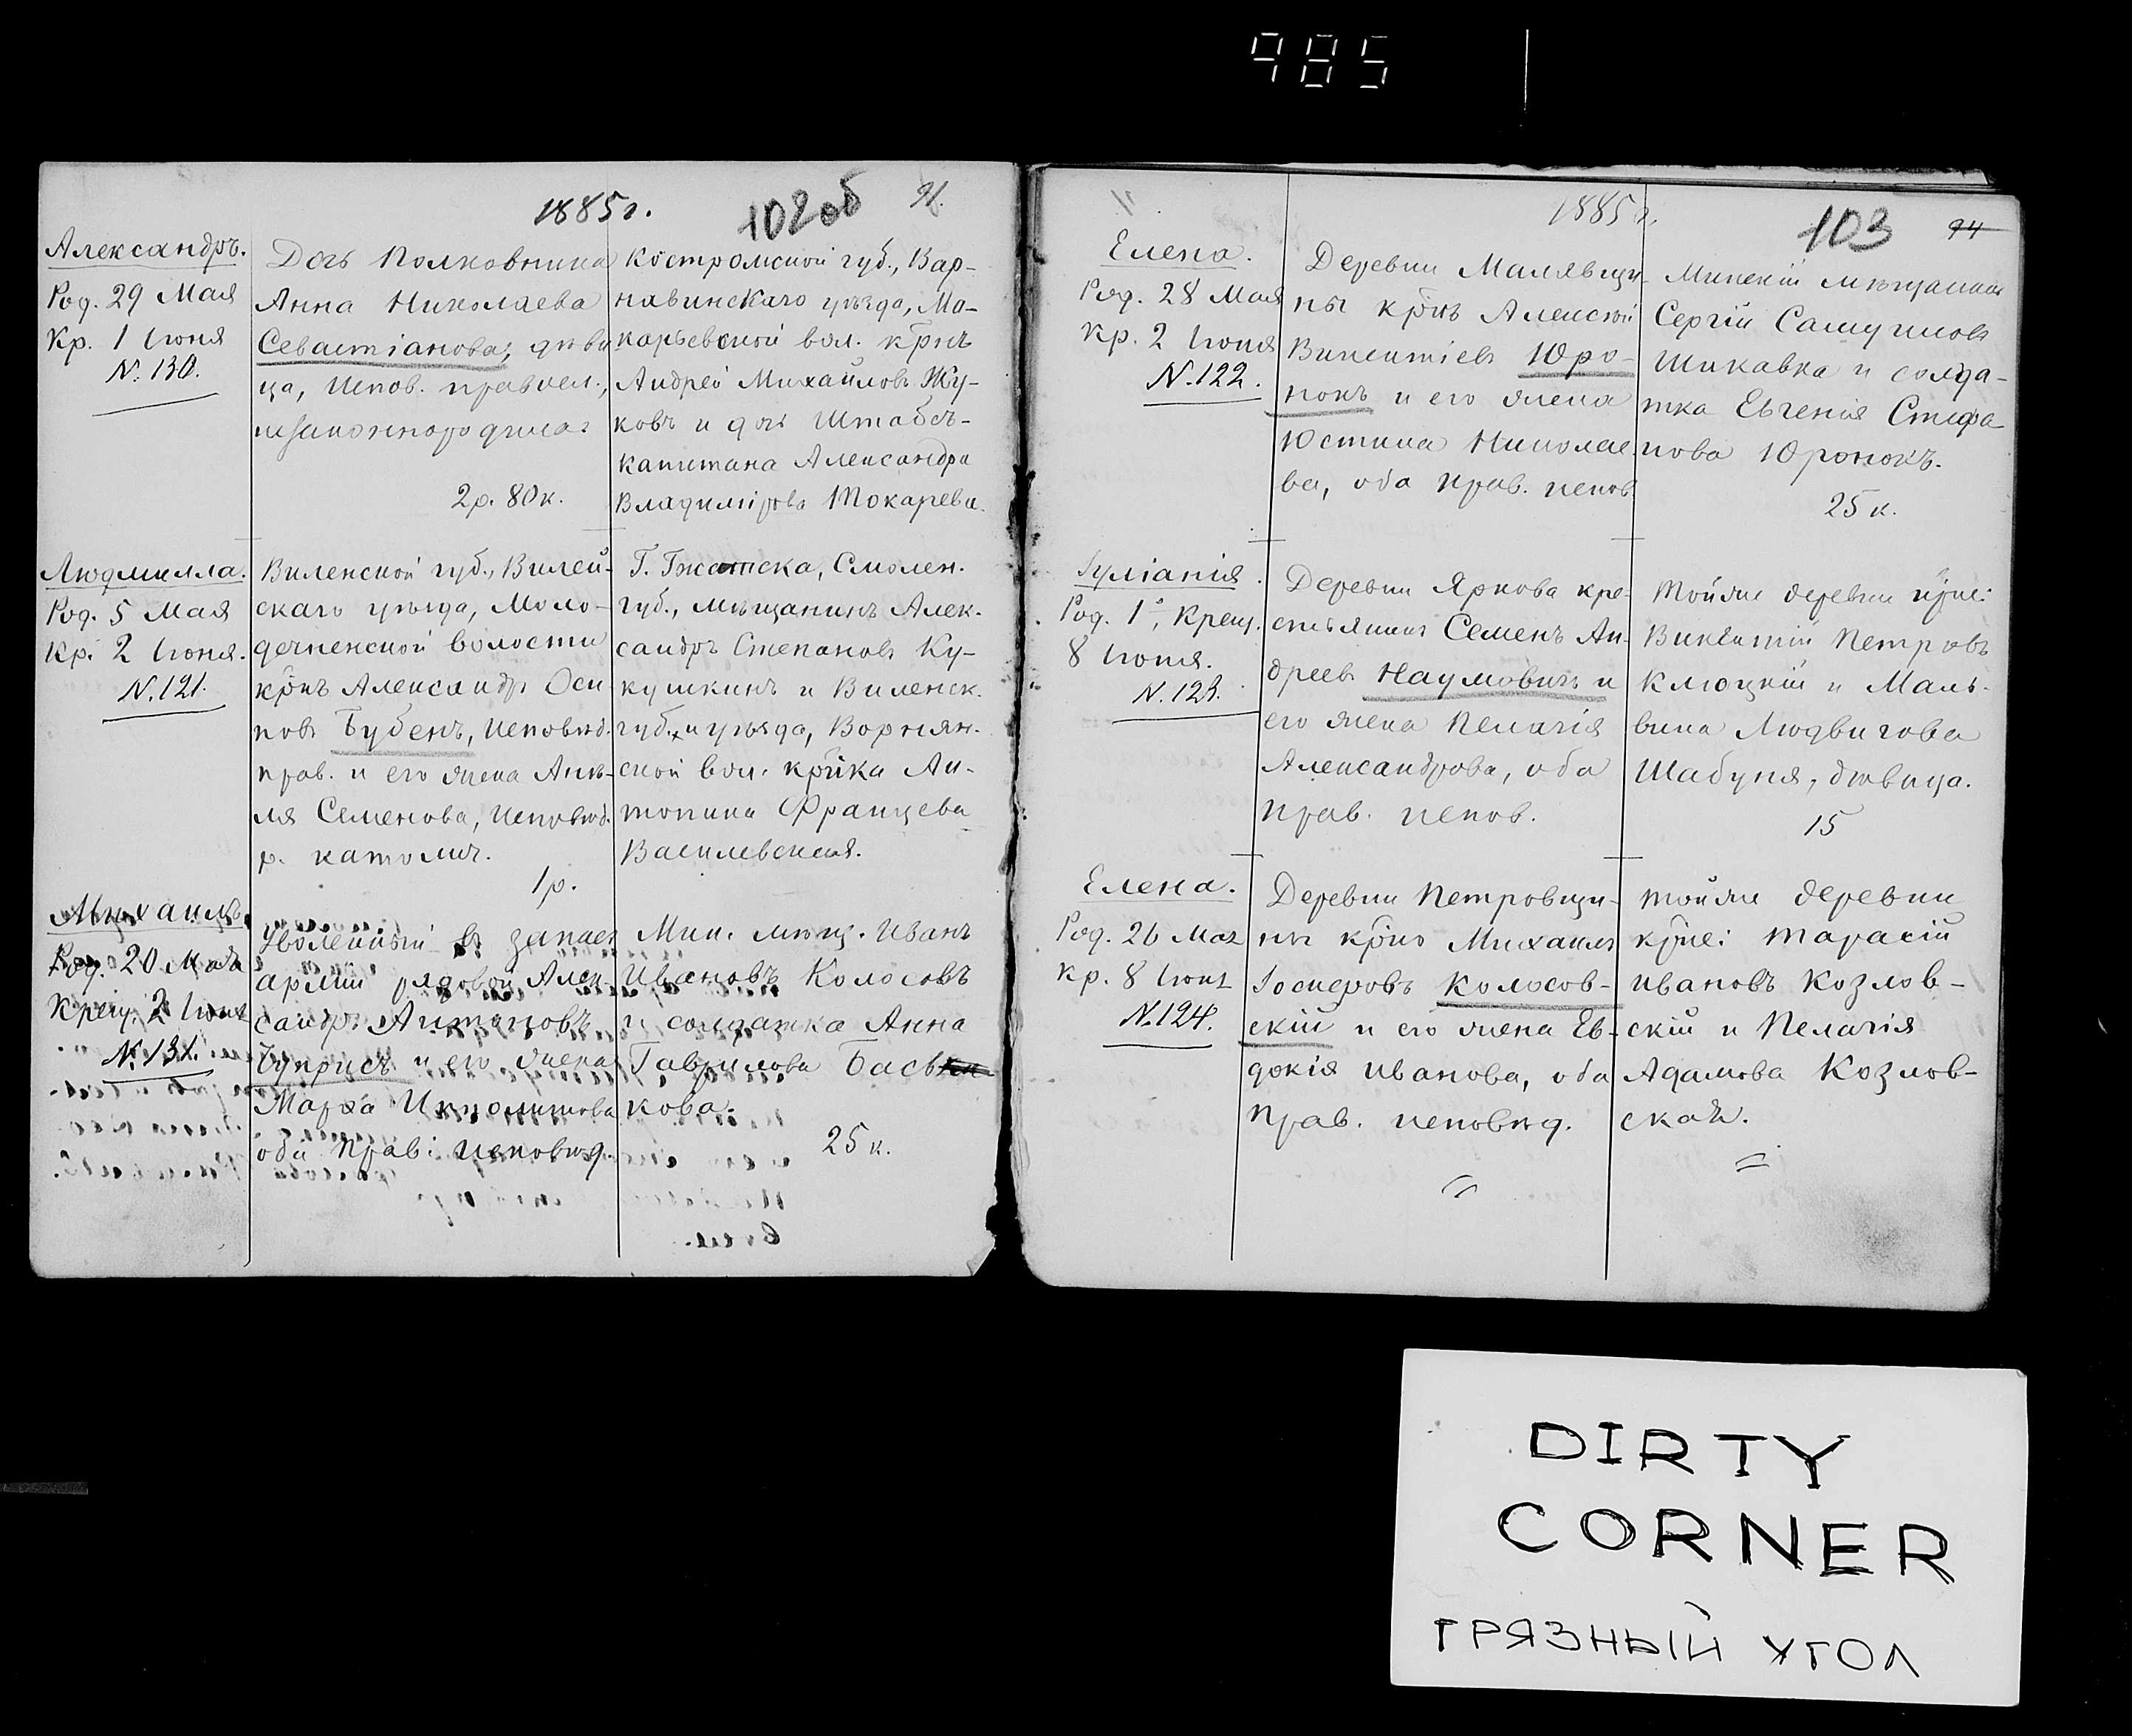 985
1885г.
102об
91.
Александръ.
Род. 29 Мая
Кр. 1 Іюня
N. 130.
Дочь Полковника
Анна Николаева
Севастіанова, дѣви
ца, испов. православ.,
незаконнорожден.
2р. 80к.
Костромской губ., Вар-
навинскаго уѣзда, Ма-
карьевской вол. крнъ
Андрей Михайловъ Жу-
ковъ и дочь Штабсъ-
капитана Александра
Владимірова Токарева.
Людмилла.
Род. 5 Мая
Кр. 2 Іюня.
N. 121.
Виленской губ., Вилей-
скаго уѣзда, Моло-
дечненской волости
крнъ Александръ Оси
повъ Бубенъ, исповѣд.
прав. и его жена Анѣ-
ля Семенова, исповѣд.
р. католич.
1р.
Г. Гжатска, Смолен.
губ., мѣщанинъ Алек-
сандръ Степановъ Ку-
кушкинъ и Виленск.
губ. и уѣзда, Ворнян-
ской вол. крнка Ан-
тонина Францева
Василевская.
Михаилъ.
Род. 20 Мая
Крещ. 2 Іюня
N. 131.
Уволенный въ запасъ
арміи рядовой Алек-
сандръ Антоновъ
Чуприсъ и его жена
Марѳа Ипполитова
оба прав: исповѣд.
Мин. мѣщ. Иванъ
Ивановъ Колосовъ
и солдатка Анна
Гаврилова Бась
кова.
25 к.
1885г.
103
94
Елена.
Род. 28 Мая
Кр. 2 Іюня
N. 122.
Деревни Малявщи-
ны крнъ Алексѣй
Викентіевъ Юро-
нокъ и его жена
Юстина Николае-
ва, оба прав. испов.
Минскій мѣщанинъ
Сергій Самуиловъ
Шикавка и солда-
тка Евгенія Стефа-
нова Юронокъ.
25 к.
Іуліанія.
Род. 1го, Крещ.
8 Іюня.
N. 123.
Деревни Яркова кре-
стьянинъ Семенъ Ан-
дреевъ Наумовичъ и
его жена Пелагія
Александрова, оба
прав. испов.
Той же деревни крне:
Викентій Петровъ
Клюцкій и Маль-
вина Людвигова
Шабуня, дѣвица.
15
Елена.
Род. 26 Мая
Кр. 8 Іюня
N. 124.
Деревни Петровщи-
ны крнъ Михаилъ
Іосифовъ Колосов-
скій и его жена Ев-
докія Иванова, оба
прав. исповѣд.
Той же деревни
крне: Тарасій
Ивановъ Козлов-
скій и Пелагія
Адамова Козлов-
ская.
DIRTY
CORNER
ГРЯЗНЫЙ УГОЛ